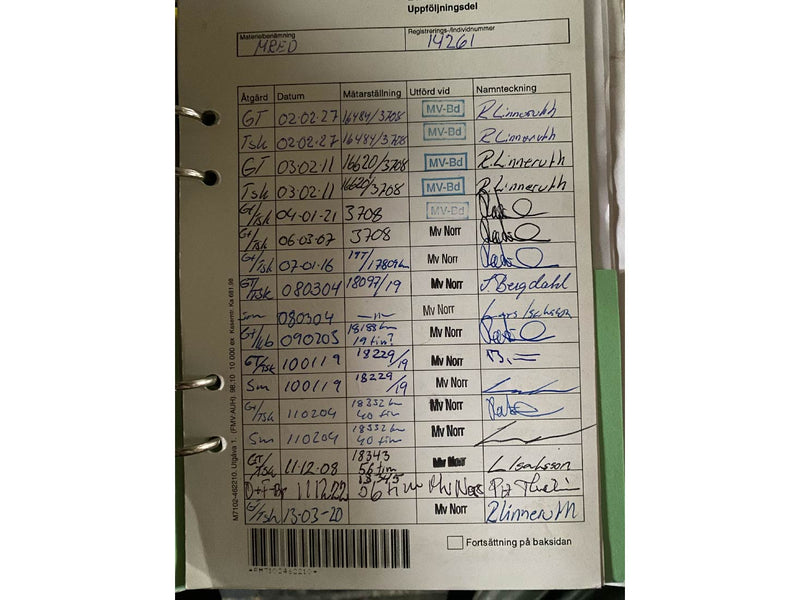 Uppföljningsdel
Materielbenämning Registrerings-/individnummer
MRED 14261
Åtgärd Datum Mätarställning Utförd vid Namnteckning
GT 02-02-27 16484/3708 MV-Bd R. Linneruth
Tsk 02-02-27 16484/3708 MV-Bd R. Linneruth
GT 03-02-11 16620/3708 MV-Bd R. Linneruth
Tsk 03-02-11 16620/3708 MV-Bd R. Linneruth
Gt/Tsk 04-01-21 3708 MV-Bd
Gt/Tsk 06-03-07 3708 Mv Norr
Gt/Tsk 07-01-16 Mv Norr
GT/Tsk 080304 18097/19 Mv Norr J Bergdahl
Sm 080304 —11— Mv Norr
Gt/ 090203 18188 km Mv Norr
19 tim
GT/Tsk 100119 18229/19 Mv Norr
Sm 100119 18229/19 Mv Norr
Gt/Tsk 110204 18332 km Mv Norr
40 tim
Sm 110204 18332 km Mv Norr
40 tim
GT/Tsk 11-12-08 18343 Mv Norr L Isaksson
56 tim
18345
111222 56 tim Mv Norr
G/Tsk 13-03-20 Mv Norr R Linneruth
Fortsättning på baksidan
M7102-462210. Utgåva 1. (FMV:AUH) 98.10 10 000 ex Kaserntr. Ka 681.98